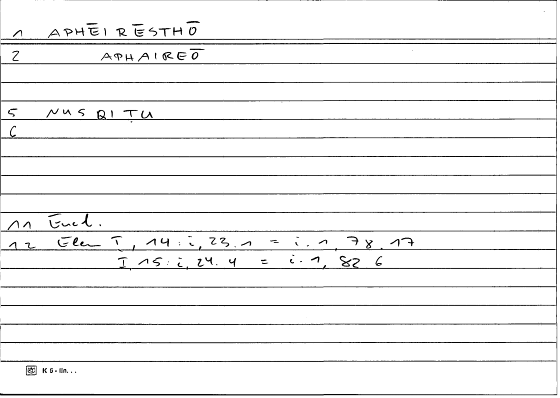 1 APHĒIRĒSTHŌ
2 APHAIREŌ
5 NUSQIṬU
6
11 Eucl.
12 Elem I, 14 : i, 23.1 = i. 1, 78.17
I, 15 : i, 24.4 = i. 1, 82 6
K 6 - lin. . .